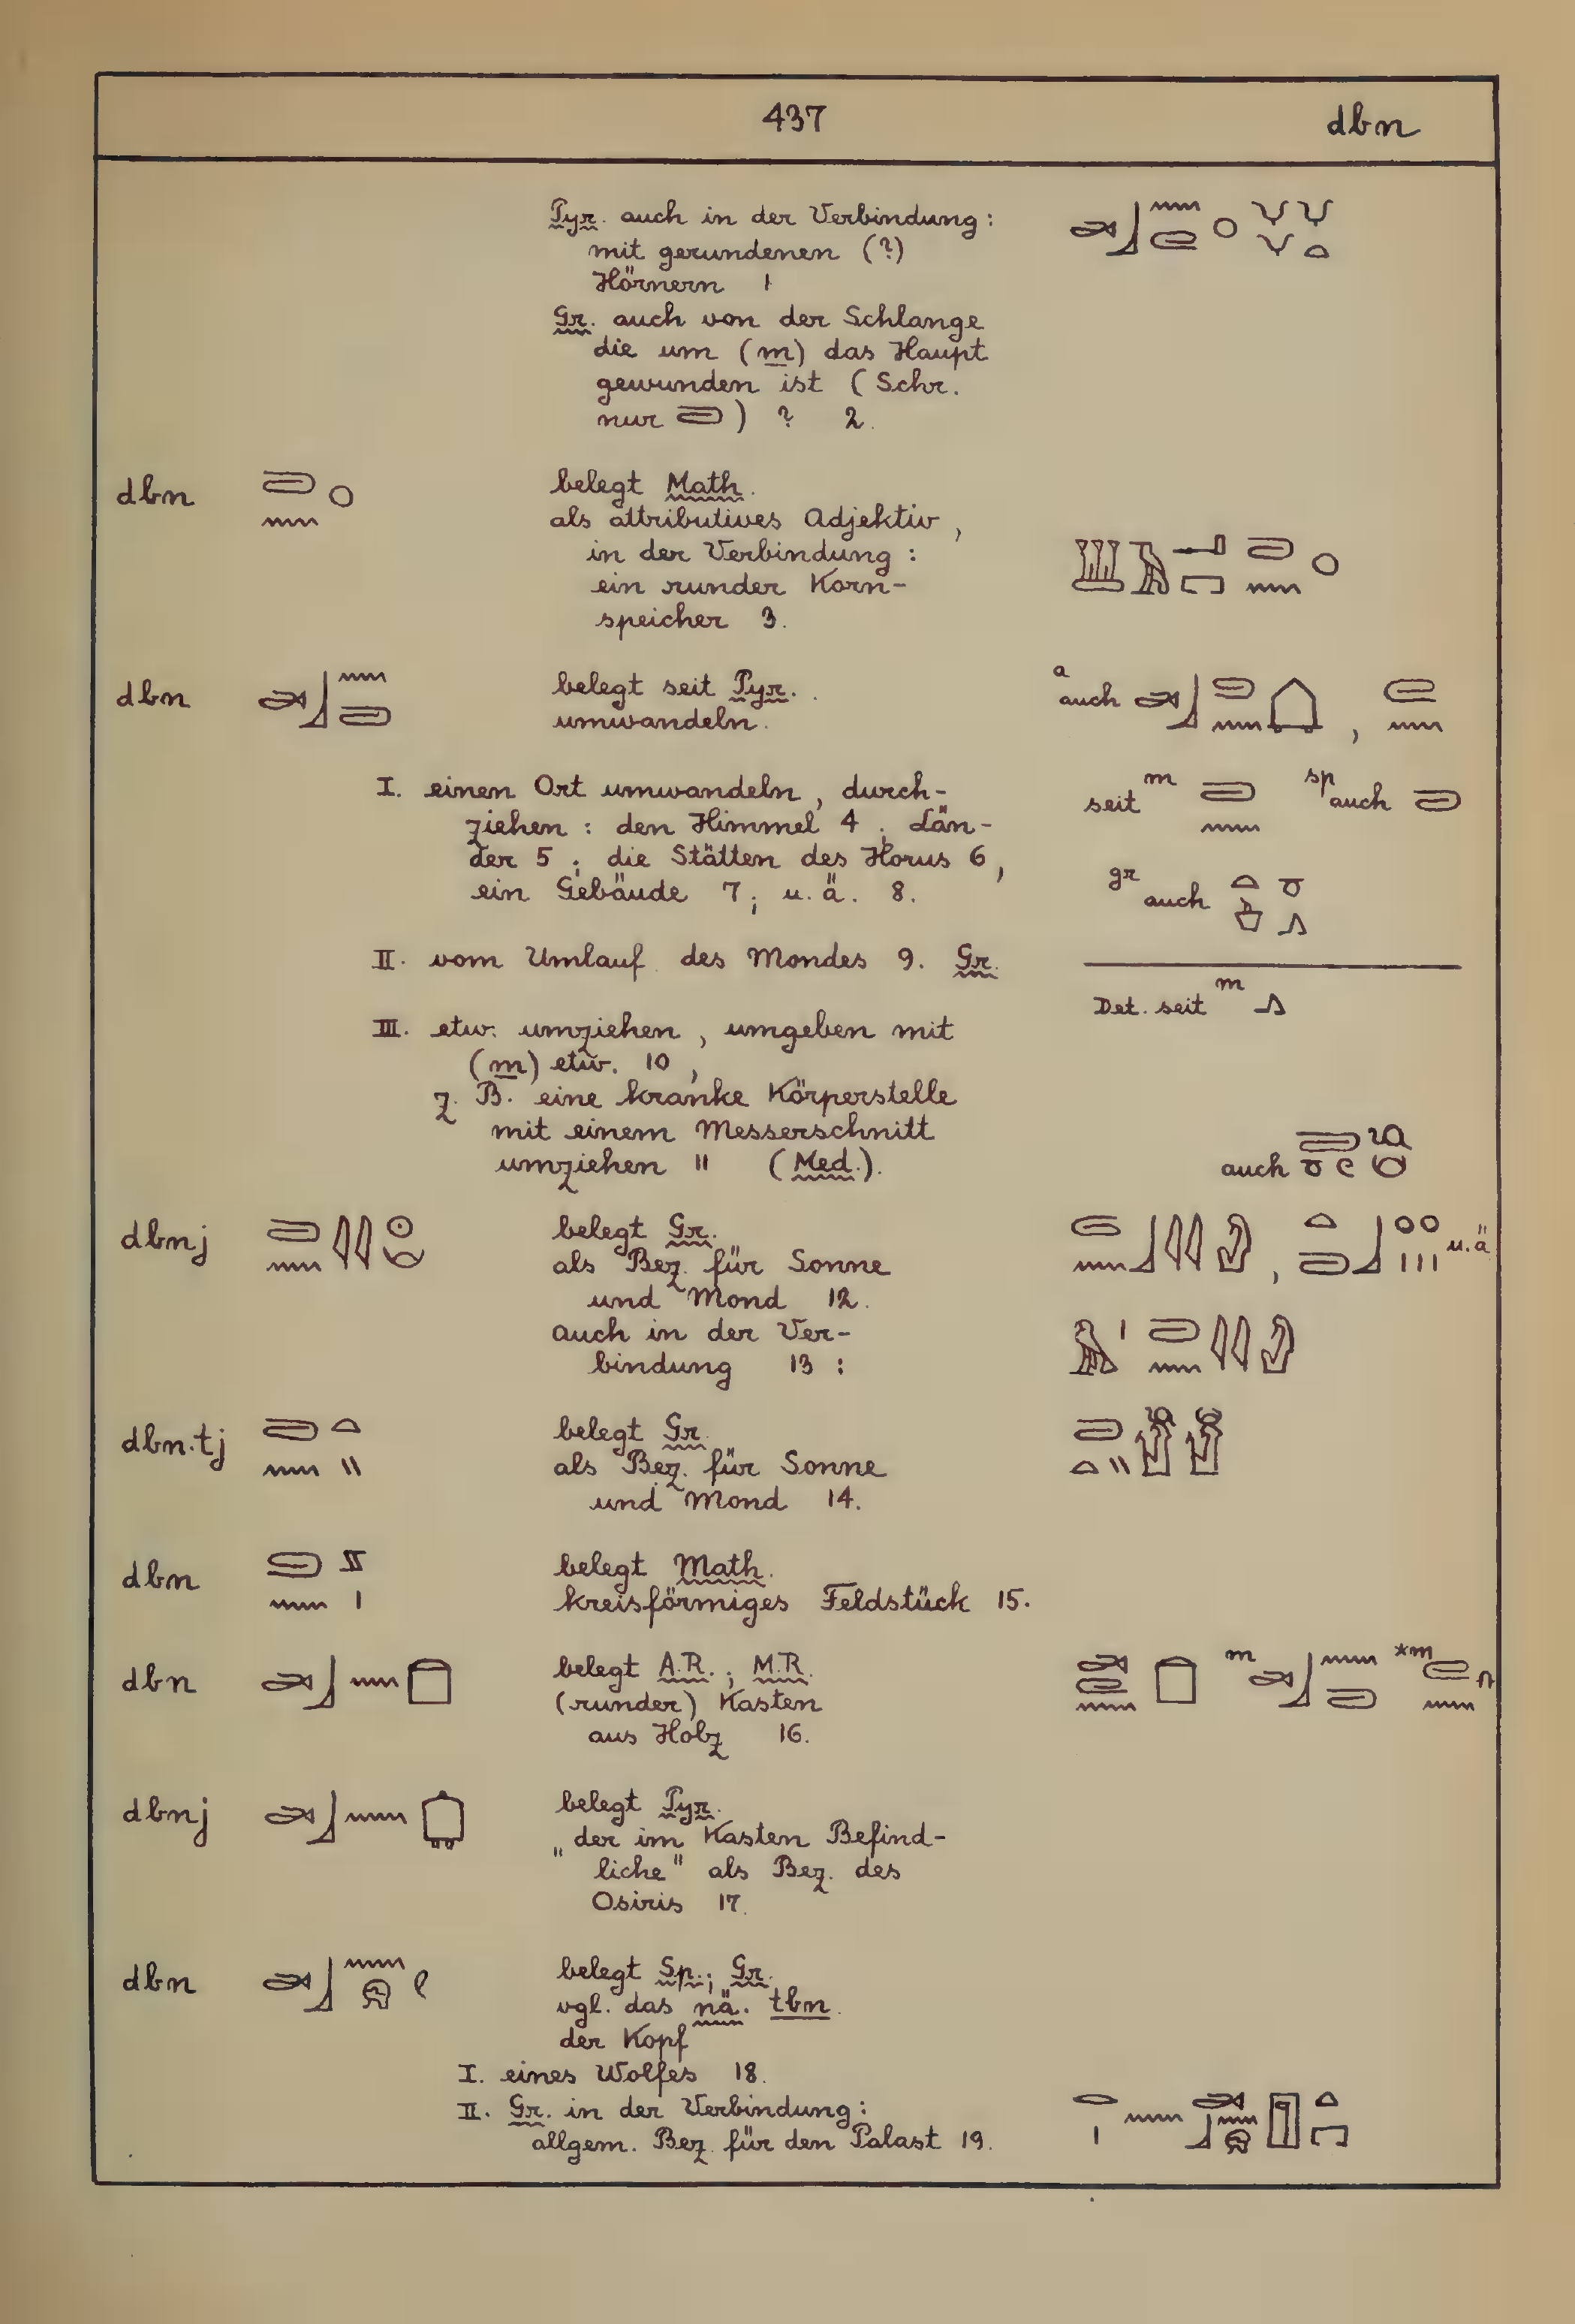 437 dbn
Pyr. auch in der Verbindung:
mit gerundenen (?)
Hörnern 1
Gr. auch von der Schlange
die um (m) das Haupt
gewunden ist (Schr.
nur ) ? 2.
dbn belegt Math.
als attributives Adjektiv,
in der Verbindung:
ein runder Korn-
speicher 3.
dbn belegt seit Pyr. a auch ,
umwandeln.
I. einen Ort umwandeln, durch- seit m sp auch
ziehen: den Himmel 4; Län-
der 5; die Stätten des Horus 6,
ein Gebäude 7; u.ä. 8. gr auch
II. vom Umlauf des Mondes 9. Gr.
Det. seit m
III. etw. umziehen, umgeben mit
(m) etw. 10,
z. B. eine kranke Körperstelle
mit einem Messerschnitt
umziehen 11 (Med.). auch
dbnj belegt Gr. , u.ä
als Bez. für Sonne
und Mond 12.
auch in der Ver-
bindung 13:
dbn.tj belegt Gr.
als Bez. für Sonne
und Mond 14.
dbn belegt Math.
kreisförmiges Feldstück 15.
dbn belegt A.R.; M.R. m *m
(runder) Kasten
aus Holz 16.
dbnj belegt Pyr.
"der im Kasten Befind-
liche" als Bez. des
Osiris 17.
dbn belegt Sp.; Gr.
vgl. das nä. tbn.
der Kopf
I. eines Wolfes 18.
II. Gr. in der Verbindung:
allgem. Bez. für den Palast 19.